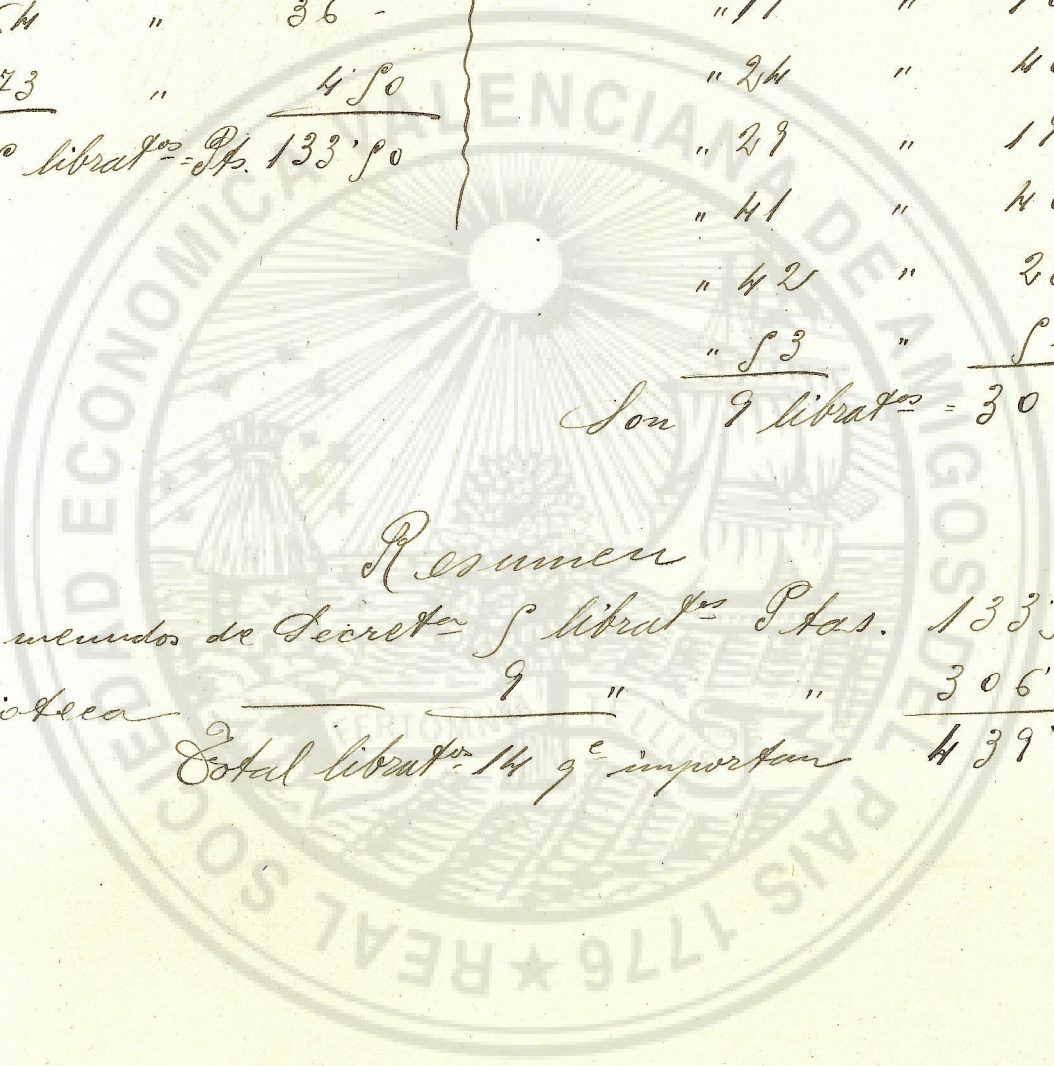 " 36 -
73 " 4 50
libratos = Pts. 133'50
" 24 "
" 29 "
" 41 "
" 42 "
" 53 "
Son 9 libratos = 30
Resumen
menudos de Secreta 5 libratos Ptas. 133
ioteca 9 " " 306'
Total libratos 14 qe importan 439'
REAL SOCIEDAD ECONOMICA VALENCIANA DE AMIGOS DEL PAIS 1776